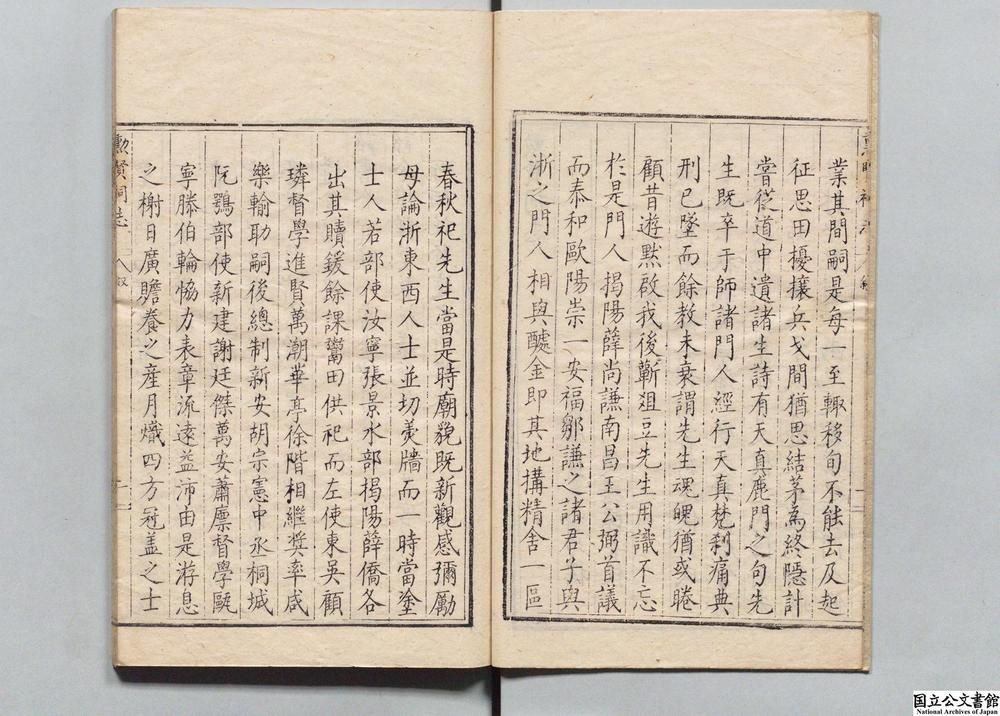 業其間嗣是每一至輙移旬不能去及起
征思田擾攘兵戈間猶思結茅為終隱計
嘗從道中遺諸生詩有天真鹿門之句先
生既卒于師諸門人經行天真梵刹痛典
刑已墜而餘教未衰謂先生魂魄猶或睠
顧昔遊黙啟我後蘄俎豆先生用識不忘
於是門人揭陽薛尚謙南昌王公弼首議
而泰和歐陽崇一安福鄒謙之諸君子與
浙之門人相與醵金即其地構精舍一區
春秋祀先生當是時廟貌既新觀感彌勵
母論浙東西人士並切羹牆而一時當塗
士人若部使汝寧張景水部揭陽薛僑各
出其贖鍰餘課鬻田供祀而左使東吳顧
璘督學進賢萬潮華亭徐階相繼奨率咸
樂輸助嗣後總制新安胡宗憲中丞桐城
阮鶚部使新建謝廷傑萬安蕭廩督學甌
寧滕伯輪恊力表章流遠益沛由是游息
之榭日廣贍養之産月熾四方冠盖之士
勲賢祠志 叙
国立公文書館
National Archives of Japan